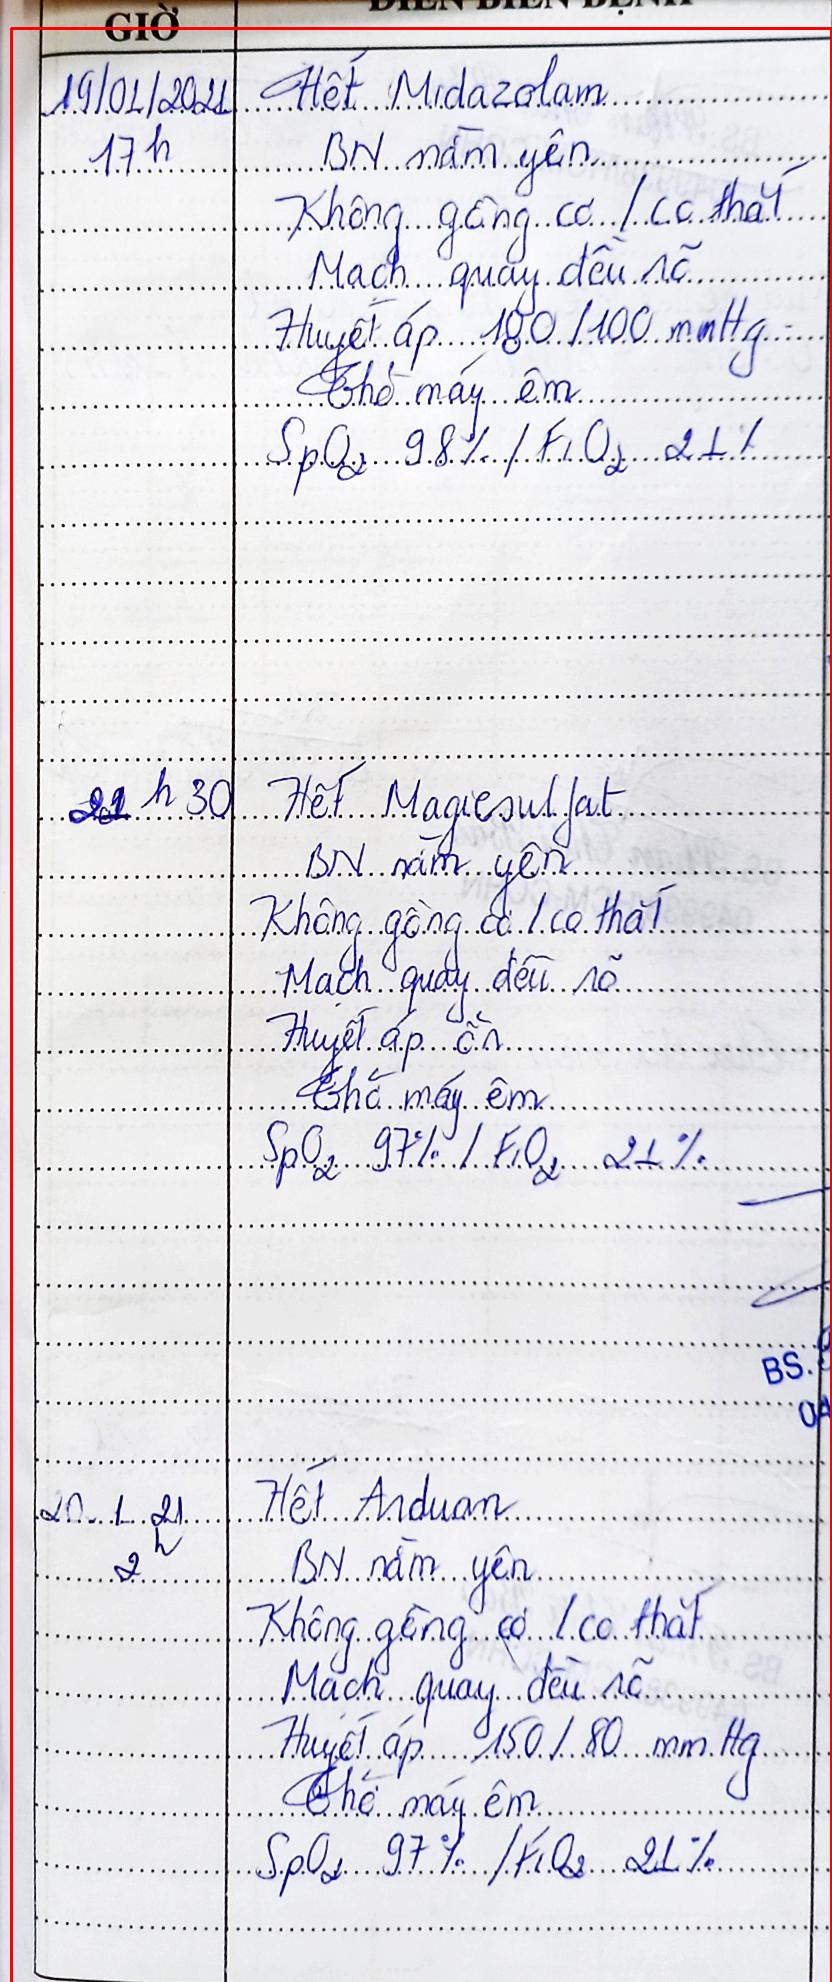 GIỜ DIỄN BIẾN BỆNH
19/01/2021 Hết Midazolam
17h BN nằm yên
Không gồng cơ / co thắt
Mạch quay đều rõ
Huyết áp 180/100 mmHg
Thở máy êm
SpO2 98% / FiO2 21%
22h30 Hết Magiesulfat
BN nằm yên
Không gồng cơ / co thắt
Mạch quay đều rõ
Huyết áp ổn
Thở máy êm
SpO2 97% / FiO2 21%
BS.
20.1.21 Hết Arduan
2h BN nằm yên
Không gồng cơ / co thắt
Mạch quay đều rõ
Huyết áp 150/80 mmHg
Thở máy êm
SpO2 97% / FiO2 21%